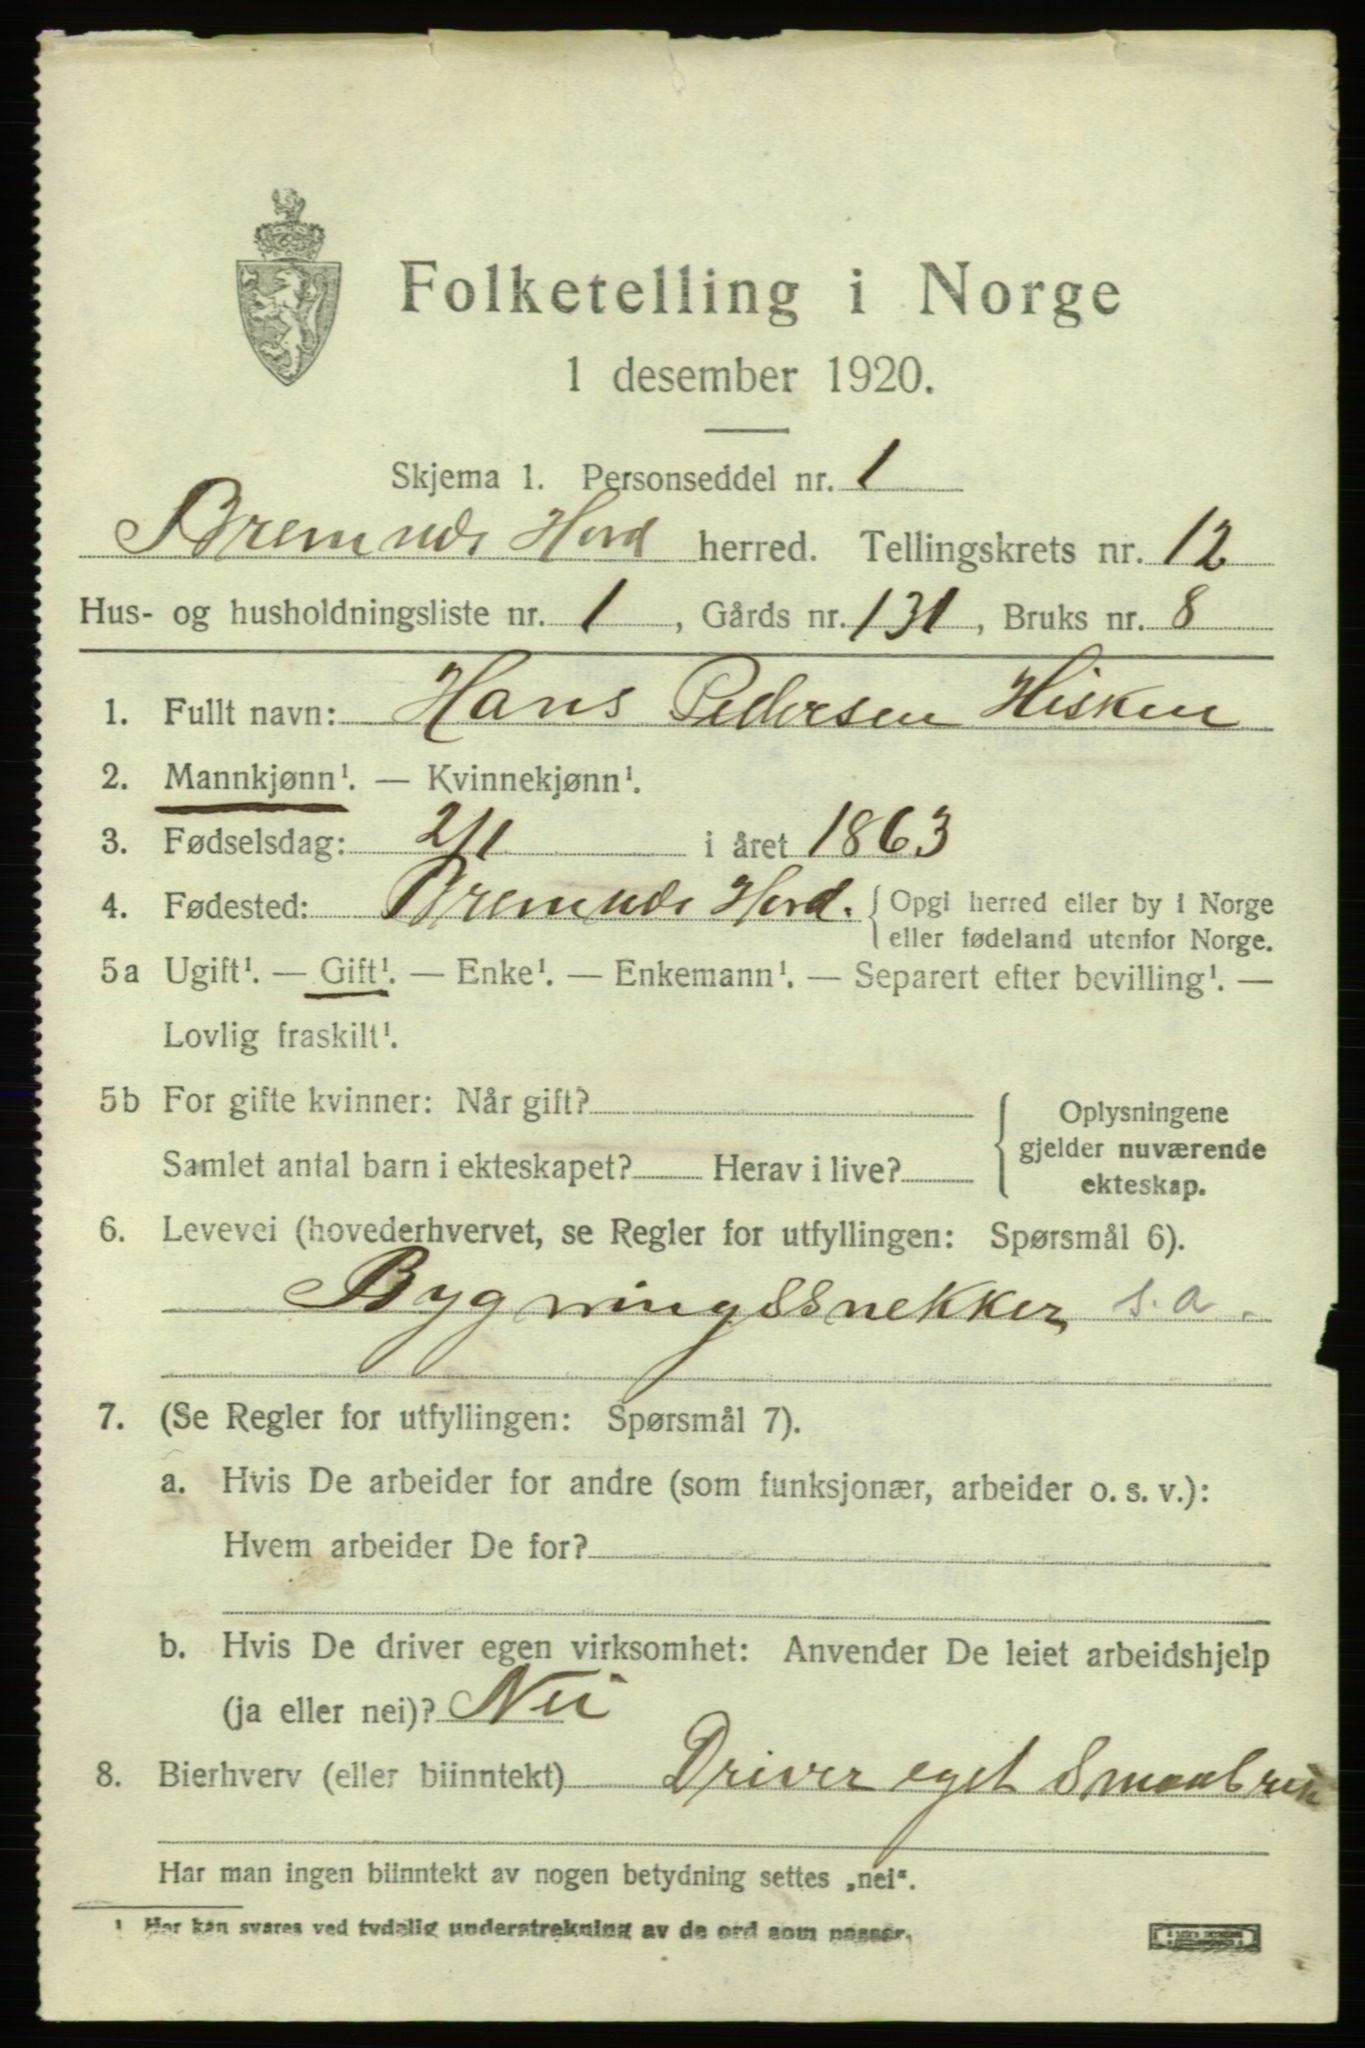 Folketelling i Norge
1 desember 1920.
Skjema 1. Personseddel nr. 1
Herd herred. Tellingskrets nr. 12
Hus- og husholdningsliste nr. 1, Gårds nr. 131, Bruks nr. 8
1. Fullt navn: Hans Pedersen Hisken
2. Mannkjønn¹. — Kvinnekjønn¹.
3. Fødselsdag: 2/1 i året 1863
4. Fødested: Herd. { Opgi herred eller by i Norge
eller fødeland utenfor Norge.
5a Ugift¹. — Gift¹. — Enke¹. — Enkemann¹. — Separert efter bevilling¹. —
Lovlig fraskilt¹.
5b For gifte kvinner: Når gift? { Oplysningene
gjelder nuværende
Samlet antal barn i ekteskapet? Herav i live?
ekteskap.
6. Levevei (hovederhvervet, se Regler for utfyllingen: Spørsmål 6).
Bygningssnekker s.a.
7. (Se Regler for utfyllingen: Spørsmål 7).
a. Hvis De arbeider for andre (som funksjonær, arbeider o. s. v.):
Hvem arbeider De for?
b. Hvis De driver egen virksomhet: Anvender De leiet arbeidshjelp
(ja eller nei)? Nei
8. Bierhverv (eller biinntekt) Driver eget Smaabruk
Har man ingen biinntekt av nogen betydning settes „nei“.
¹ Her kan svares ved tydelig understrekning av de ord som passer.